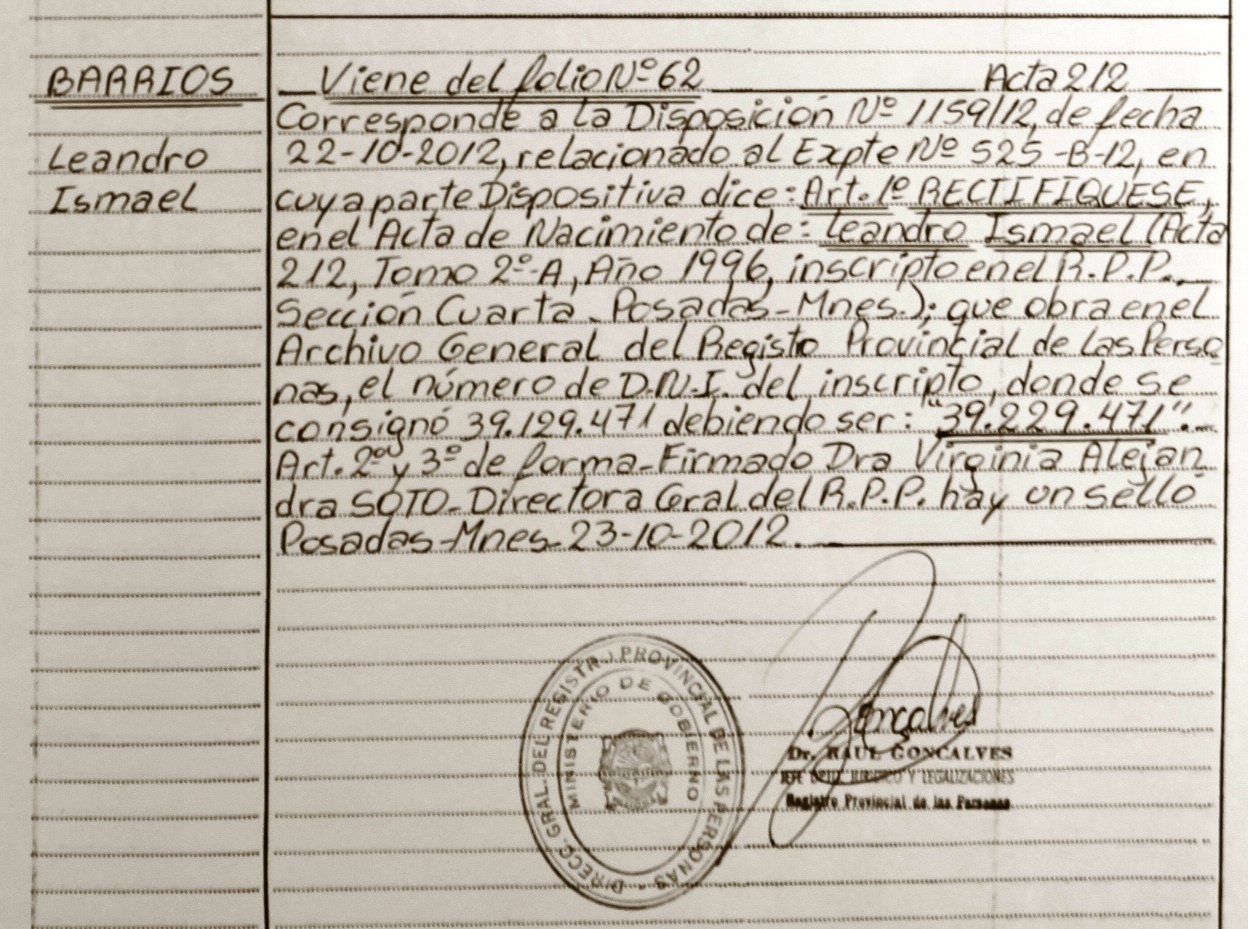 BARRIOS
Leandro
Ismael
Viene del folio Nº 62 Acta 212
Corresponde a la Disposición Nº 1159/12, de fecha
22-10-2012, relacionado al Expte Nº 525-B-12, en
cuya parte Dispositiva dice: Art. 1º RECTIFIQUESE,
en el Acta de Nacimiento de: Leandro Ismael (Acta
212, Tomo 2º-A, Año 1996, inscripto en el R.P.P.
Sección Cuarta - Posadas-Mnes.); que obra en el
Archivo General del Registo Provincial de las Perso
nas, el número de D.N.I. del inscripto, donde se
consignó 39.129.471 debiendo ser: "39.229.471".
Art. 2º y 3º de forma-Firmado Dra Virginia Alejan
dra SOTO-Directora Gral del R.P.P. hay un sello
Posadas-Mnes-23-10-2012.
DIRECC. GRAL. DEL REGISTRO PROVINCIAL DE LAS PERSONAS
MINISTERIO DE GOBIERNO
Gonçalves
Dr. RAUL GONCALVES
JEFE DPTO. JURIDICO Y LEGALIZACIONES
Registro Provincial de las Personas